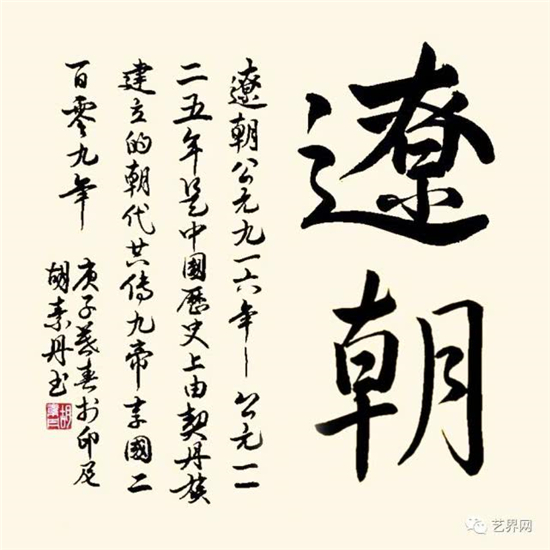 遼朝
遼朝公元九一六年—公元一一
二五年是中國歷史上由契丹族
建立的朝代共傳九帝享國二
百零九年
庚子暮春於印尼
胡素丹书
艺界网